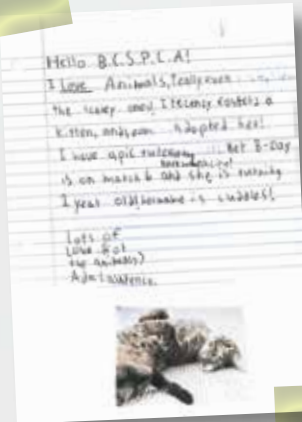 Hello B.C.S.P.C.A!
I Love Animals, really even
the scarey ones! I recently fosterd a
kitten, and soon adopted her!
I have a pic Her B-Day
is on march 6 and she is turning
1 year old! her name is cuddles!
Lots of
Love for
the animals)